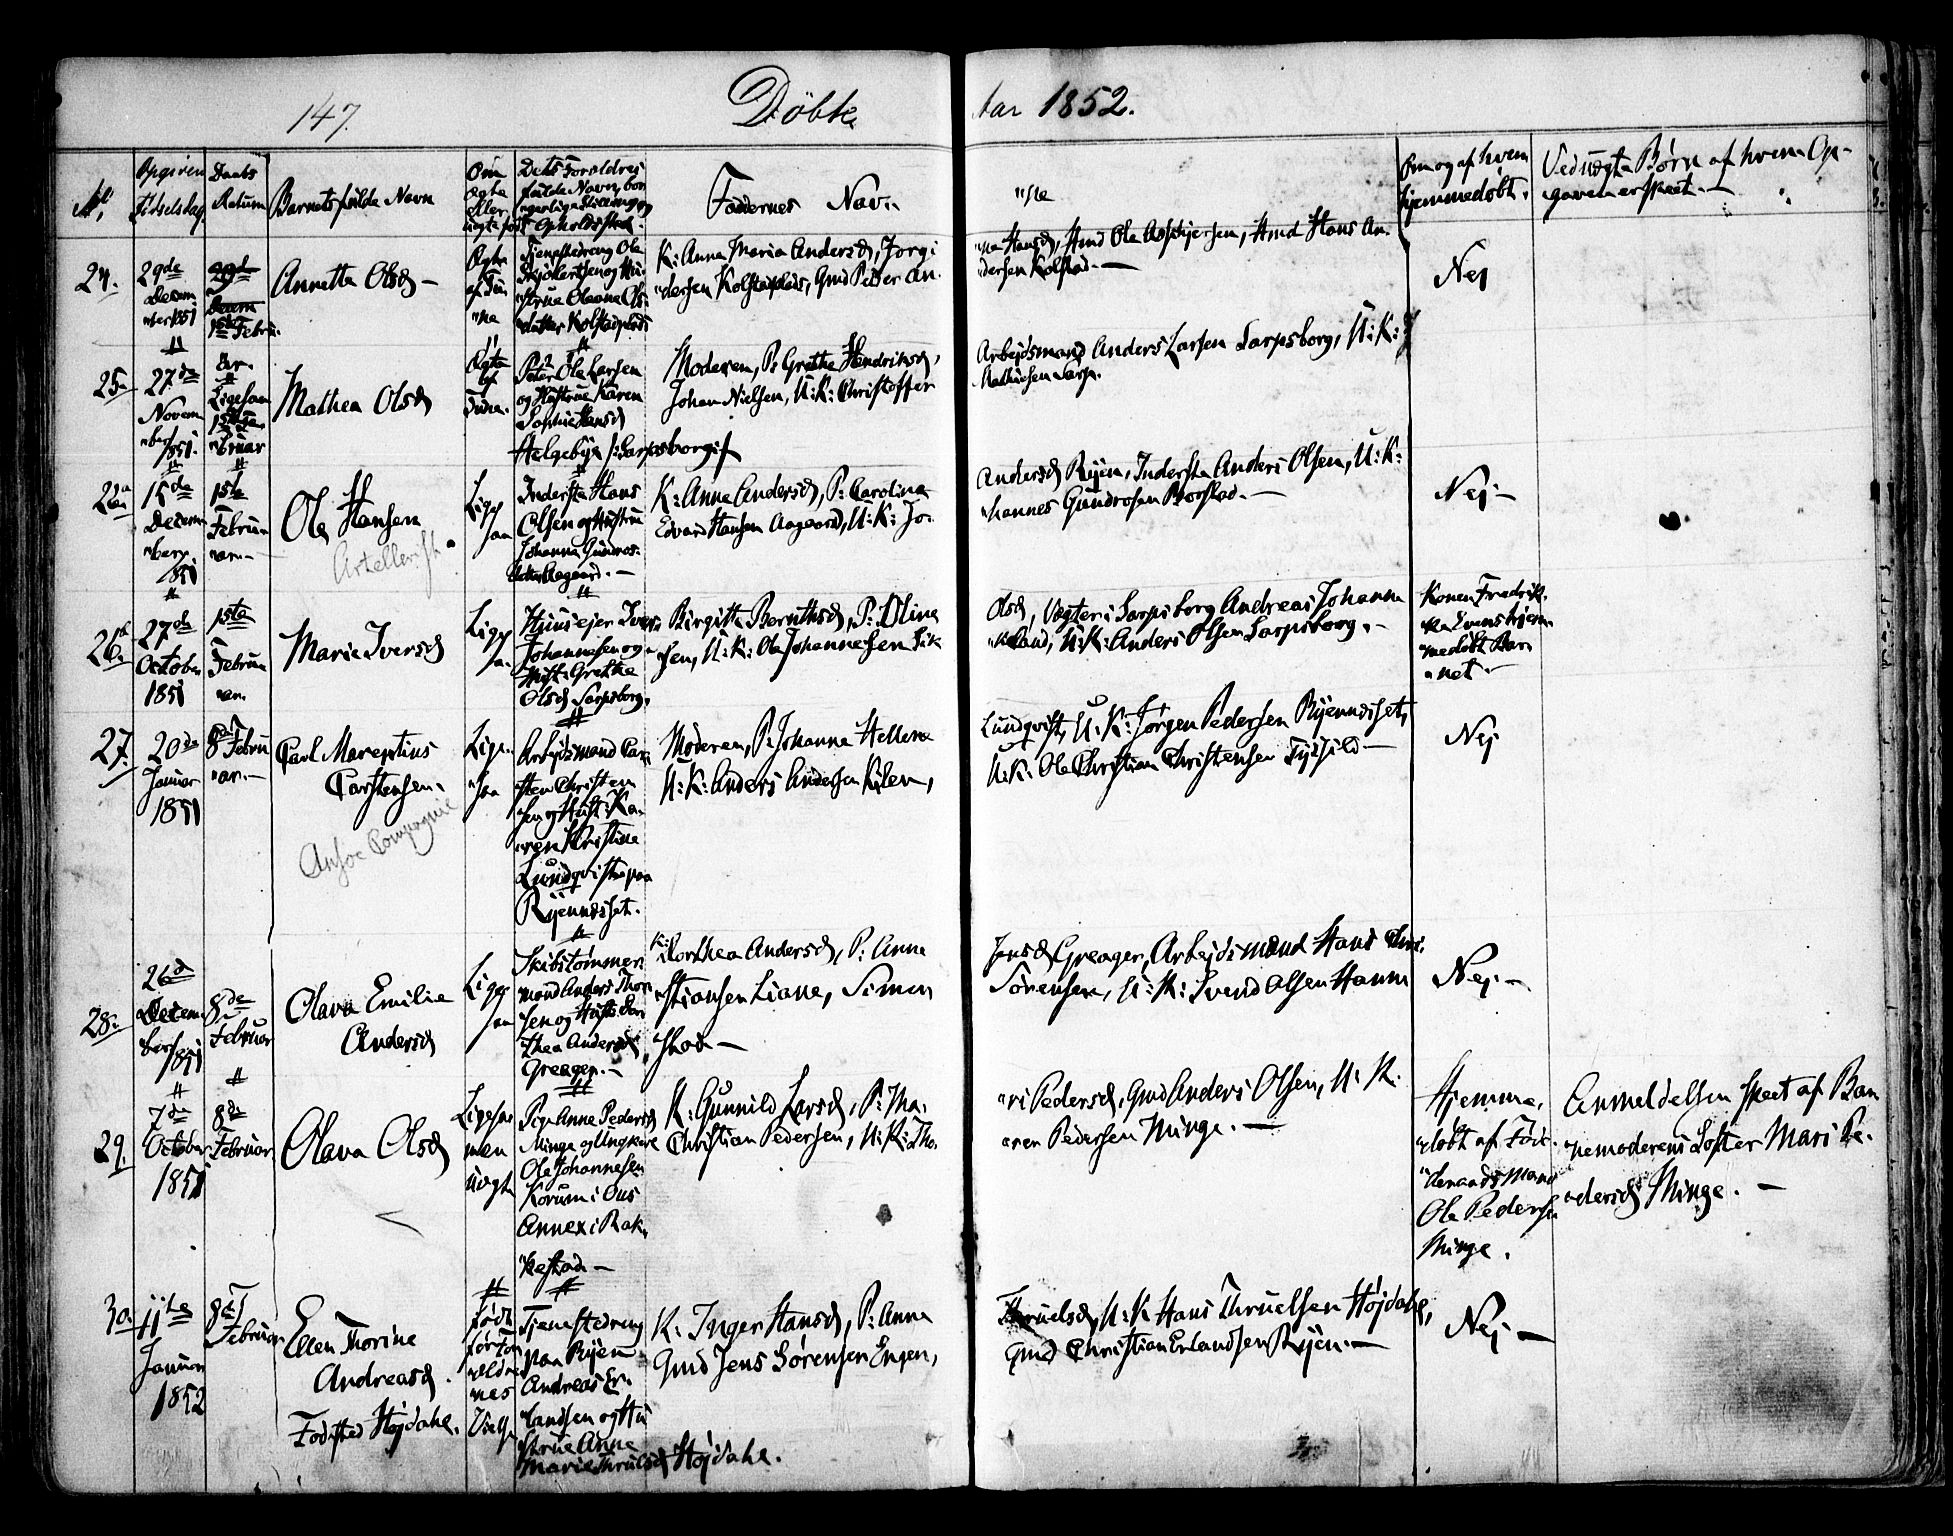 147.
Döbte
1852.
No.
Opgiven
Fødselsdag.
Daabs
Datum
Barnets fulde Navn
Om
ægte
eller
uægte født
Dets Forældres
fulde Navn, bor
opholdssted.
Faddernes Nav
"ne
Om og af hvem
hjemmedøbt.
Ved uægte Børn af hvem Op-
gaven er skeet.—
24.
29de
Decem
"ber 1851
1ste Febru
ar.
Annetta Olsd —
Ægte
Tjenestedreng Ole
"strue Oleane Ols
"datter Kolstadplads
K: Anna Maria Andersd, Jørgi
"dersen Kolstadplads, Gmd Peder An.
"na Hansd, Hmd Ole Asbjersen, Hmd Hans An.
"dersen Kolstad.—
Nej
25.
27de
Novem
"ber
1851.
Ligesaa
1ste Fe
"bruar
Mathea Olsd
Ægte
af
Ole Larsen
og Hustrue Karen
Sophie Hansd
Helgebye /: Sarpsborg :/
Moderen, P: Grethe Hendriksd,
Johan Nielsen, U:K: Christoffer
Arbejdsmand Anders Larsen Sarpsborg, U:K:
Mathiesen Sarp.
26a
15de
Decem
"ber
1851
1ste
Februa
"ar.—
Ole Hansen
Ligesaa
Inderste Hans
Olsen og Hustrue
Johanna Gundros-
datter Aagaard.—
K: Anne Andersd, P: Carolina
Edvard Hansen Aagaard, U:K: Jo-
Andersd Ryen, Inderste Anders Olsen, U:K:
"hannes Gundrosen Borstad.—
Nej—
26b
27de
October
1851
1ste
Februa
"ar.
Marie Iversd
Ligesaa
Huusejer Iver
Johannesen og
Hust: Grethe
Olsd Sarpsborg.
Birgitta Berntsd, P: Oline
"sen, U:K: Ole Johannesen Eik
Olsd, Vægter i Sarpsborg Andreas Johanne
"keland, U:K: Anders Olsen Sarpsborg.—
Konen Fredrik-
"ka Evens hjem
"medøbt Bar
"net.—
27.
20de
Januar
1851
8de Febru
"ar.—
Carl Marentius
Carstensen.
Compagnie
Ligesaa
Arbejdsmand Car
"sten Christen
"sen og Hust: Ka
"ren Kristine
Lundqvist paa
Ryenndset.
Moderen, P: Johanna Hellene
U:K: Anders Andersen Kilen,
Lundqvist, U:K: Jørgen Pedersen Ryenndset,
U:K: Ole Christian Christensen
Nej
28.
26de
Decem
ber
1851
8de
Februar
Olava Emilie
Andersd
Ligesaa
Skibstømmer
mand Anders Thor
sen og Hust: Dor
thea Andersd,
Greager.—
K: Dorthea Andersd, P: Anne
"stiansen Liane, Simen
"stad—
Jensd Greager, Arbejdsmand Hans Chri-
Sørensen, U:K: Svend Olsen Hanne
Nej.—
29.
7de
October
1851
8de
Februar
Olava Olsd
Ligesaa
men
uægte
Pige Anne Pedersd
Minge og Ungkarl
Ole Johannesen
Korum i Øus
Annex i Rak-
"kestad—
K: Gunnild Larsd, P: Ma-
Christian Pedersen, U:K: Tho-
"ri Pedersd, Gmd Anders Olsen, U:K:
"ren Pedersen Minge.—
Hjemme-
"døbt af
Ole Pedersen
Minge.
Anmeldelsen skeet af Bar
"nemoderens Søster Mari Pe-
"dersd Minge.—
30.
11te
Januar
1852
8de
Februar
Ellen Thorine
Andreasd.
Fødested Højdahl.
Født
før For
"ældre
nes
Vielse
Tjenestedreng
paa Ryen
Andreas Er-
"landsen og Hu
strue Anne
Marie Thrulsd Højdahl.
K: Inger Hansd, P: Anne
Gmd Jens Sørensen Engen,
Thruelsd, U:K Hans Thruelsen Højdahl,
Gmd Christian Erlandsen Ryen.—
Nej—